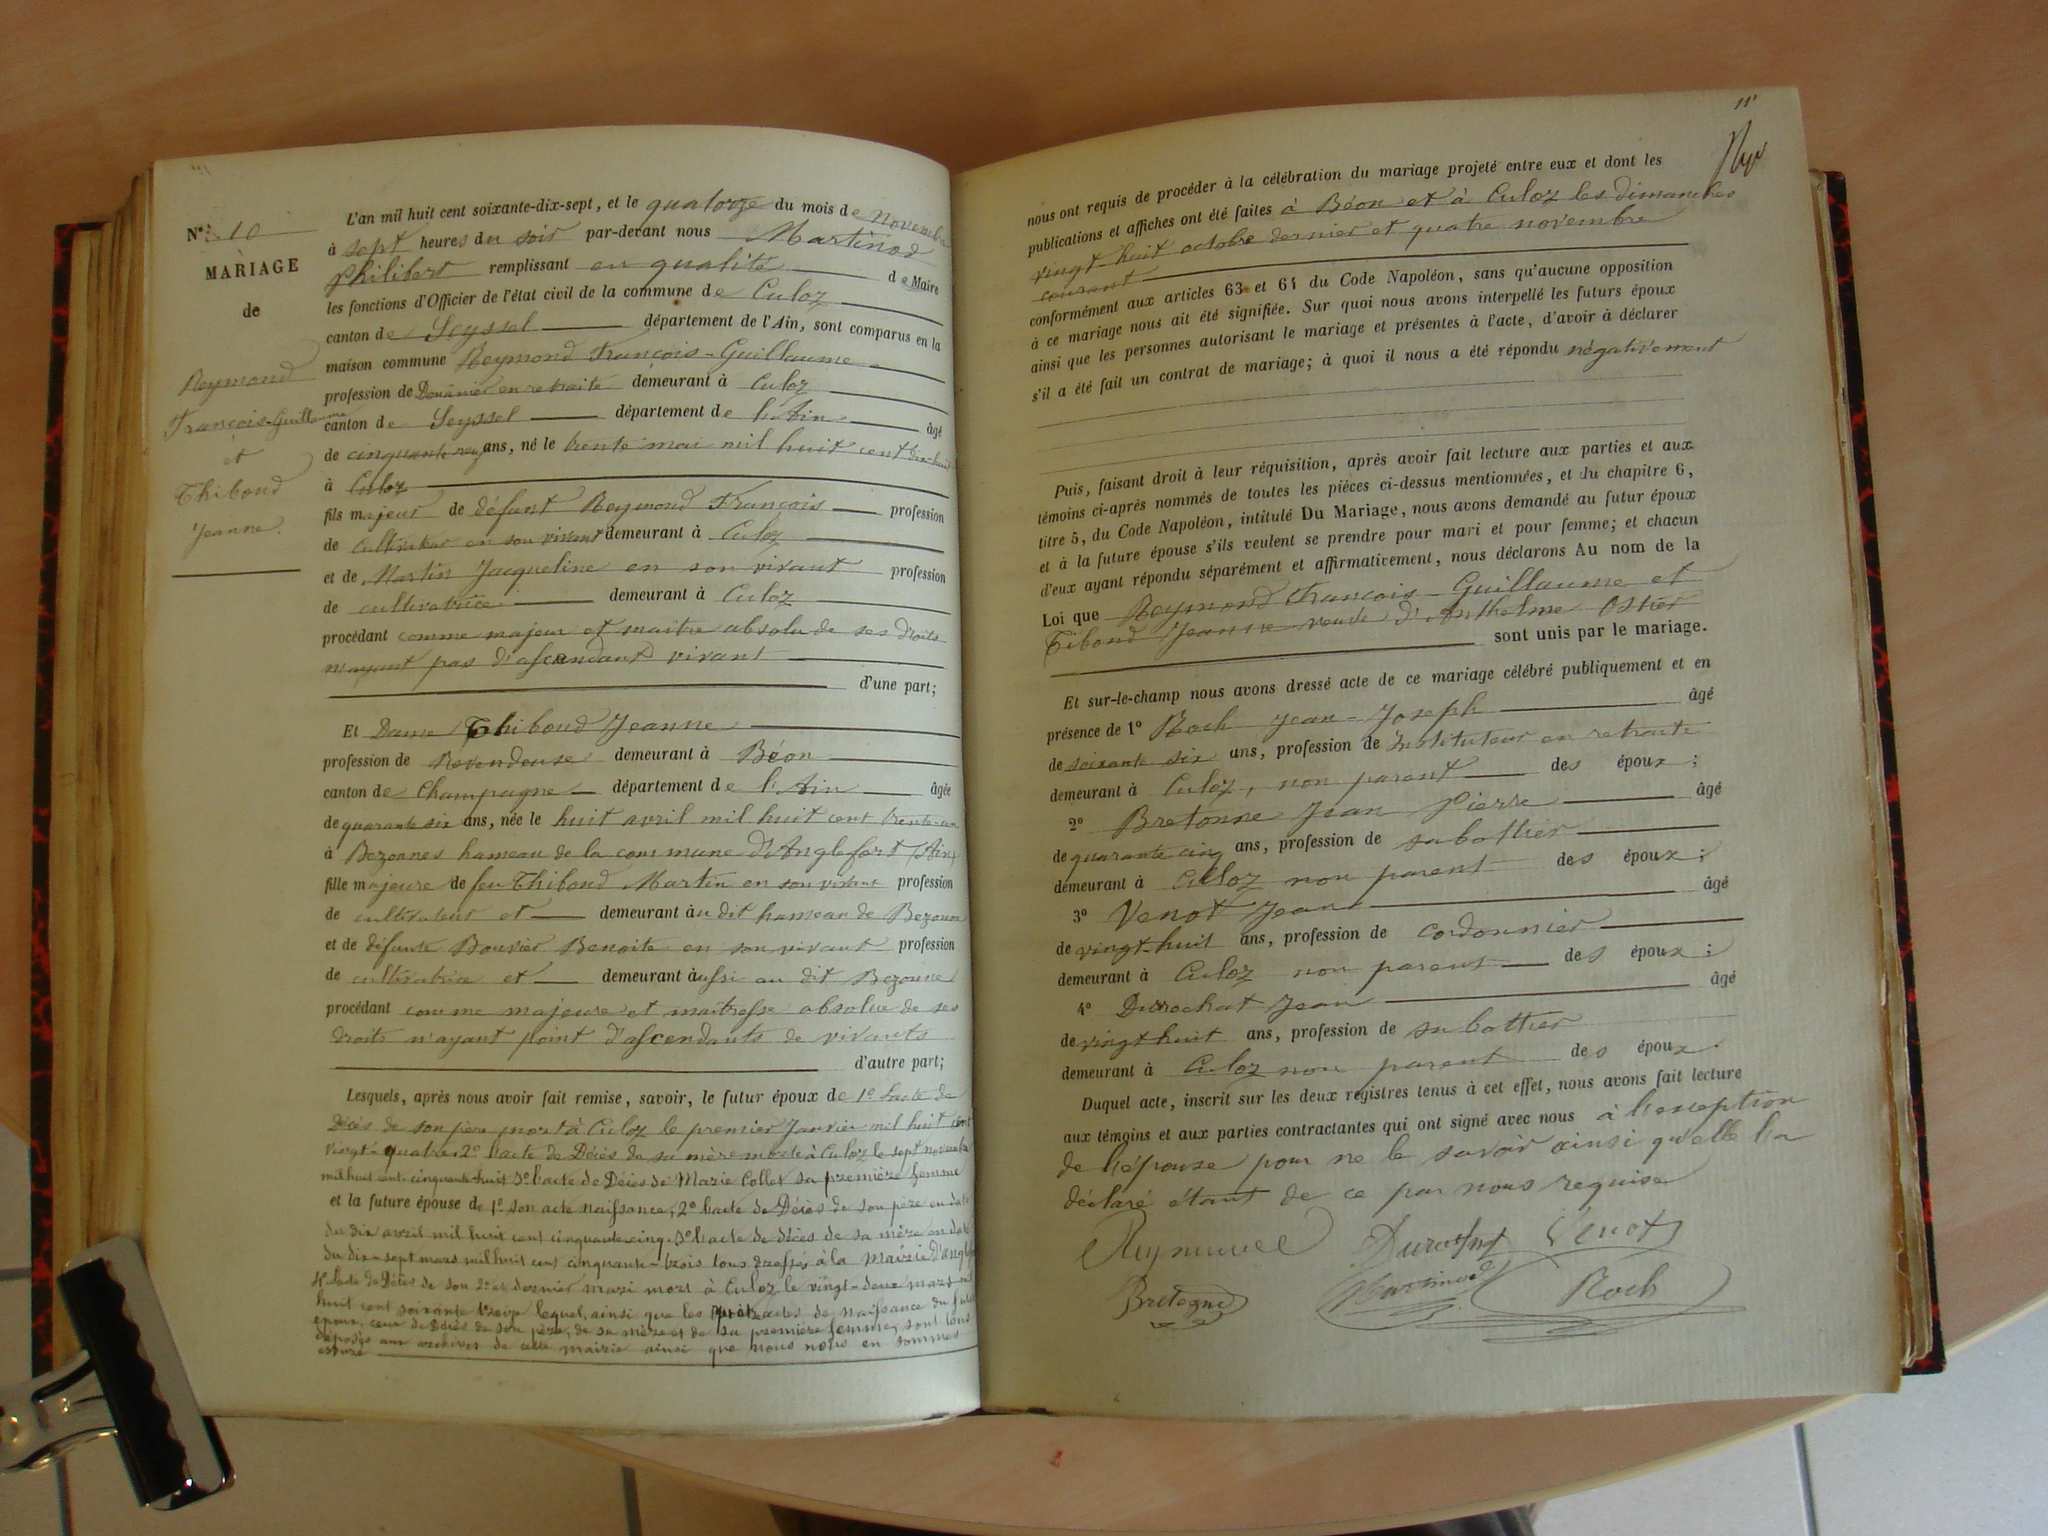 N° 10
MARIAGE
de
Reymond
François-Guillaume
et
Thiboud
Jeanne.
L'an mil huit cent soixante-dix-sept, et le quatorze du mois de novembre
à sept heures du soir par-devant nous Martinod
Philibert remplissant en qualité de Maire
les fonctions d'Officier de l'état civil de la commune de Culoz
canton de Seyssel département de l'Ain, sont comparus en la
maison commune Reymond François-Guillaume
profession de Douanier en retraite demeurant à Culoz
canton de Seyssel département de l'Ain âgé
de cinquante neuf ans, né le trente mai mil huit cent dix-huit
à Culoz
fils majeur de défunt Reymond François profession
de cultivateur en son vivant demeurant à Culoz
et de Martin Jacqueline en son vivant profession
de cultivatrice demeurant à Culoz
procédant comme majeur et maître absolu de ses droits
n'ayant pas d'ascendant vivant
d'une part;
Et Dame Thiboud Jeanne
profession de Revendeuse demeurant à Béon
canton de Champagne département de l'Ain âgée
de quarante six ans, née le huit avril mil huit cent trente-un
à Bezonnes hameau de la commune d'Anglefort (Ain)
fille majeure de feu Thiboud Martin en son vivant profession
de cultivateur et demeurant au dit hameau de Bezonne
et de défunte Bouvier Benoite en son vivant profession
de cultivatrice et demeurant aussi au dit Bezonne
procédant comme majeure et maîtresse absolue de ses
droits n'ayant point d'ascendants de vivants
d'autre part;
Lesquels, après nous avoir fait remise, savoir, le futur époux de 1° l'acte de
Décès de son père mort à Culoz le premier Janvier mil huit cent
vingt-quatre, 2° l'acte de Décès de sa mère morte à Culoz le sept novembre
mil huit cent cinquante huit 3° l'acte de Décès de Marie Collet sa première femme
et la future épouse de 1° son acte naissance, 2° l'acte de Décès de son père en date
du dix avril mil huit cent cinquante cinq, 3° l'acte de décès de sa mère en date
du dix-sept mars mil huit cent cinquante-trois tous dressés à la Mairie d'Anglefort
4° l'acte de Décès de son 2e et dernier mari mort à Culoz le vingt-deux mars mil
huit cent soixante treize lequel, ainsi que les actes de naissance du futur
époux, ceux de Décès de son père, de sa mère et de sa première femme, sont tous
déposés aux archives de cette mairie ainsi que nous nous en sommes
assuré
11
nous ont requis de procéder à la célébration du mariage projeté entre eux et dont les
publications et affiches ont été faites à Béon et à Culoz les dimanches
vingt-huit octobre dernier et quatre novembre
courant
conformément aux articles 63 et 64 du Code Napoléon, sans qu'aucune opposition
à ce mariage nous ait été signifiée. Sur quoi nous avons interpellé les futurs époux
ainsi que les personnes autorisant le mariage et présentes à l'acte, d'avoir à déclarer
s'il a été fait un contrat de mariage; à quoi il nous a été répondu négativement
Puis, faisant droit à leur réquisition, après avoir fait lecture aux parties et aux
témoins ci-après nommés de toutes les pièces ci-dessus mentionnées, et du chapitre 6,
titre 5, du Code Napoléon, intitulé Du Mariage, nous avons demandé au futur époux
et à la future épouse s'ils veulent se prendre pour mari et pour femme; et chacun
d'eux ayant répondu séparément et affirmativement, nous déclarons Au nom de la
Loi que Reymond François-Guillaume et
Tiboud Jeanne veuve d'Anthelme Ostier
sont unis par le mariage.
Et sur-le-champ nous avons dressé acte de ce mariage célébré publiquement et en
présence de 1° Roch Jean-Joseph âgé
de soixante six ans, profession de Instituteur en retraite
demeurant à Culoz, non parent des époux;
2° Bretonne Jean Pierre âgé
de quarante cinq ans, profession de sabottier
demeurant à Culoz non parent des époux;
3° Venot Jean âgé
de vingt-huit ans, profession de cordonnier
demeurant à Culoz non parent des époux;
4° Durochat Jean âgé
de vingt huit ans, profession de sabottier
demeurant à Culoz non parent des époux.
Duquel acte, inscrit sur les deux registres tenus à cet effet, nous avons fait lecture
aux témoins et aux parties contractantes qui ont signé avec nous à l'exception
de l'épouse pour ne le savoir ainsi qu'elle l'a
déclaré étant de ce par nous requise
Durochat Venot
Martinod Roch